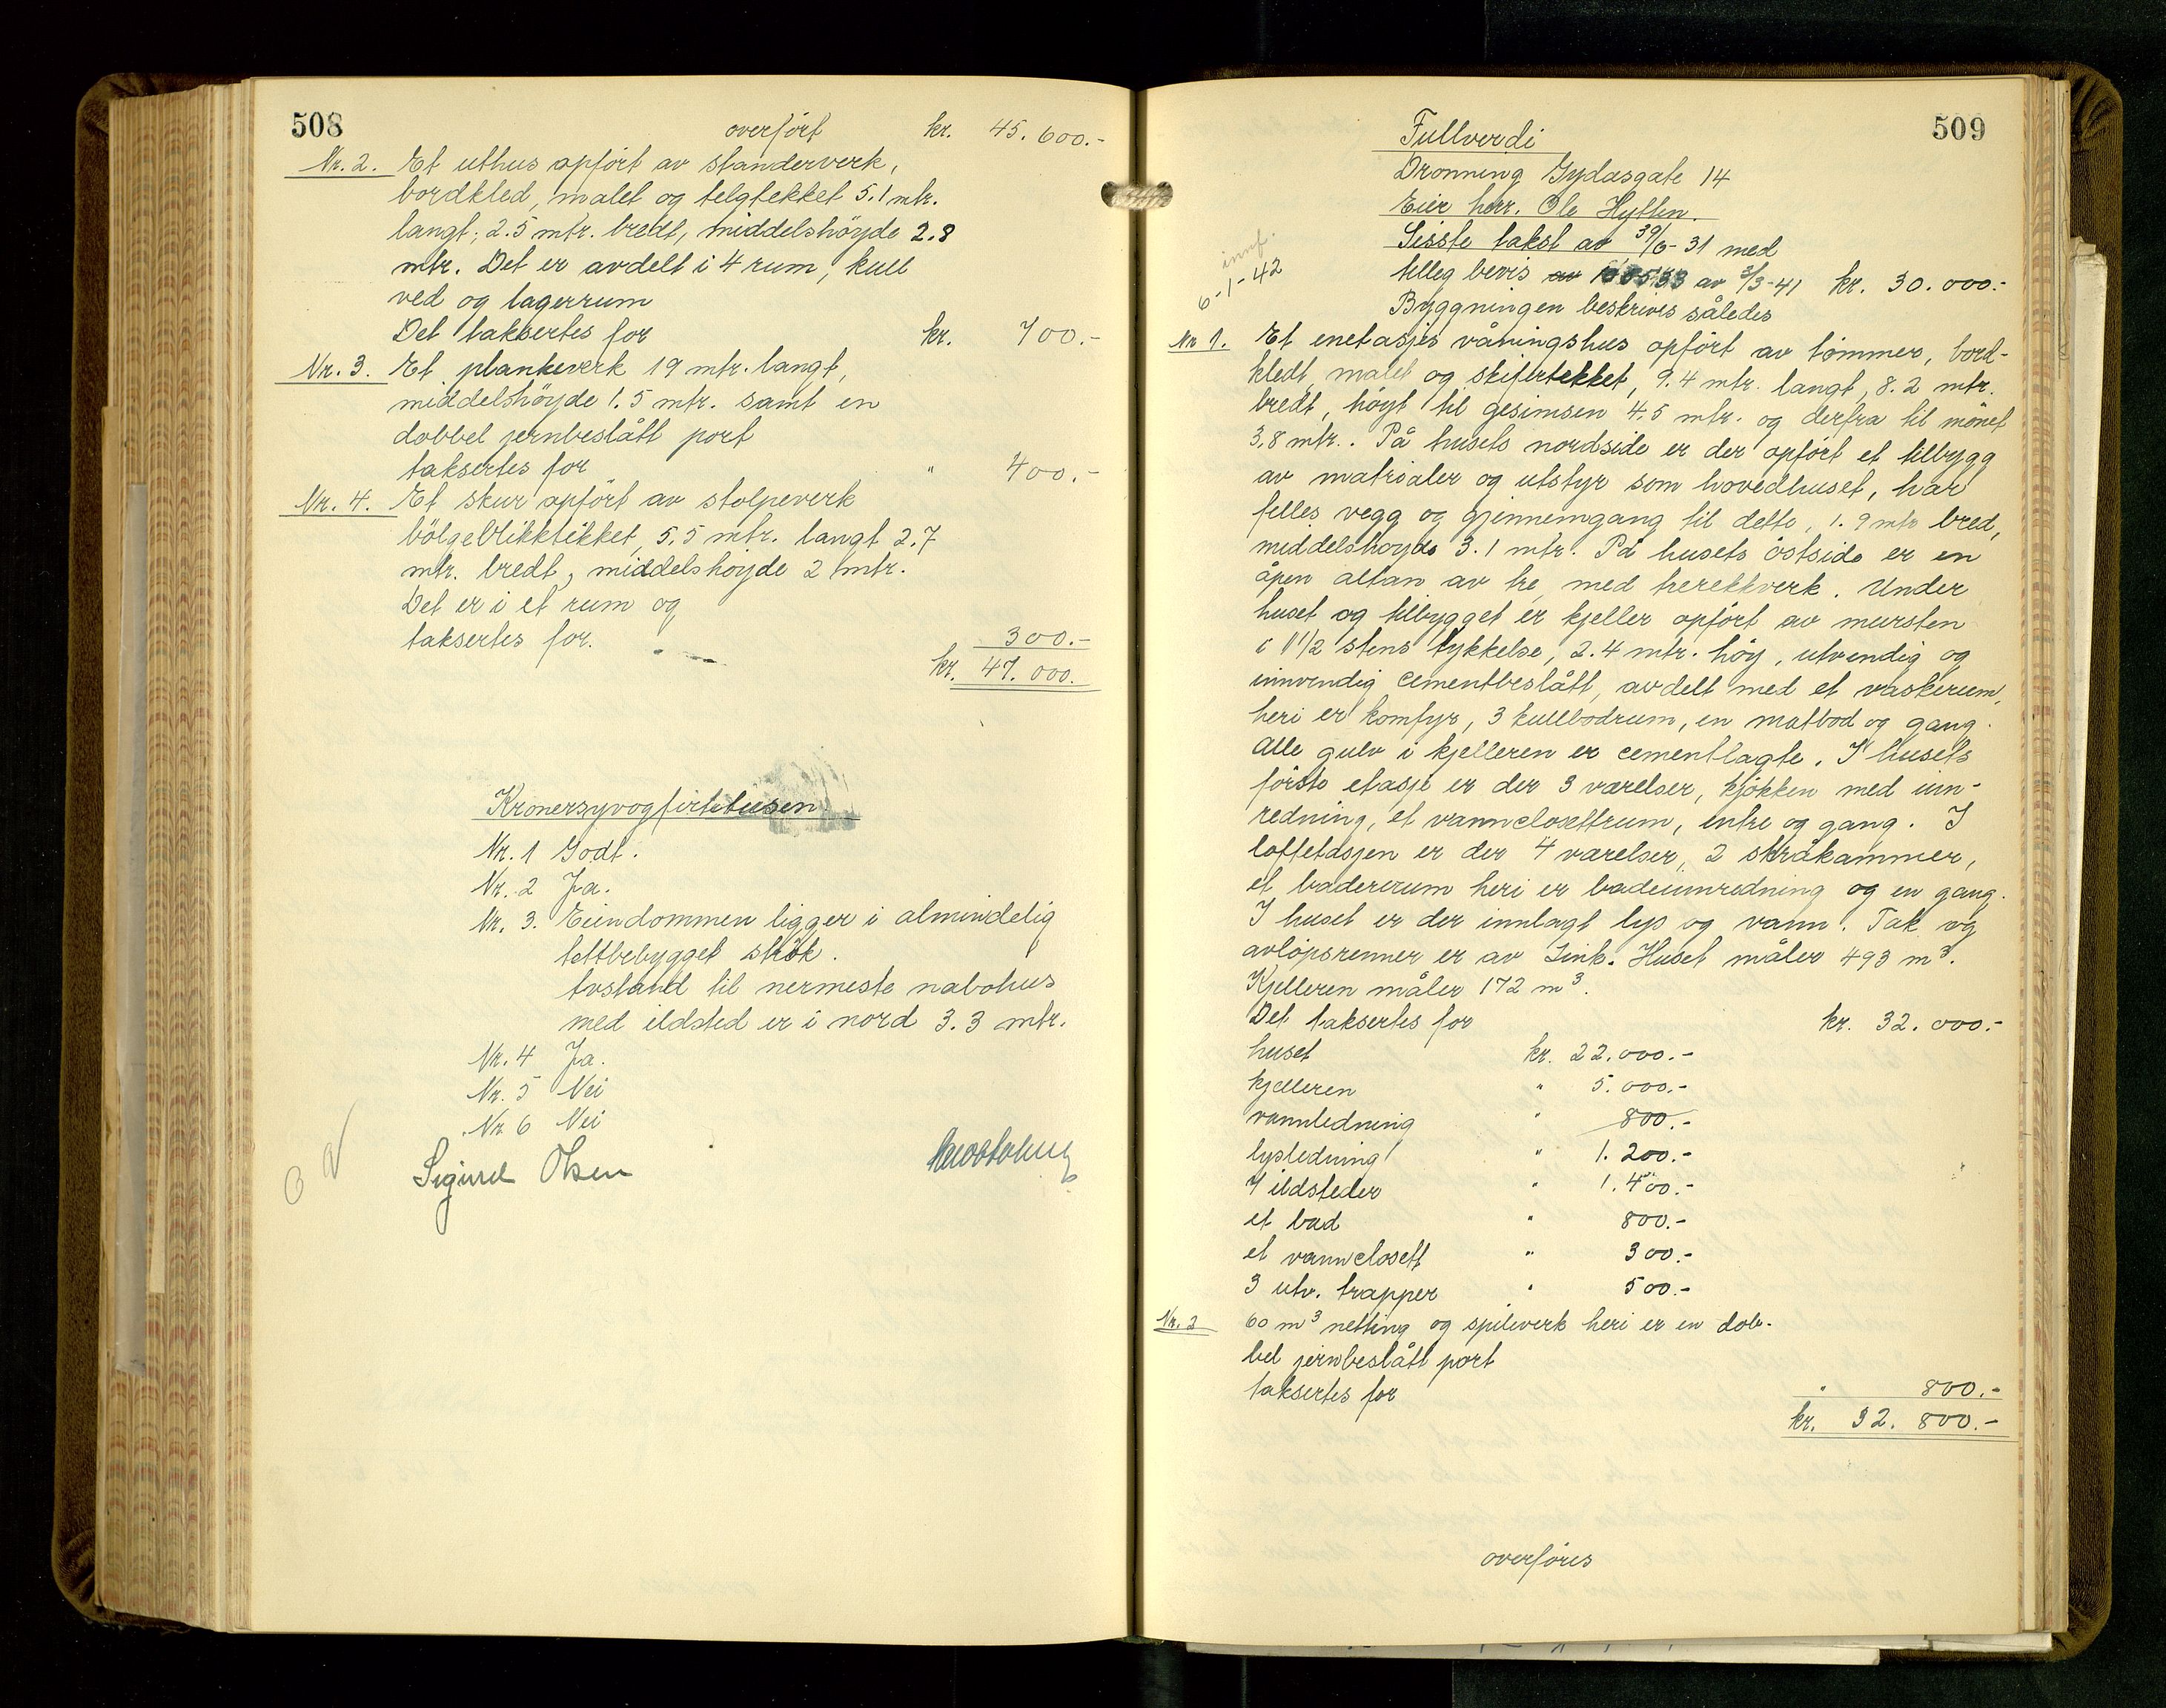 508
overført kr. 45.600.-
Nr. 2. Et uthus opført av standerverk,
bordkled, malet og telgtekket 5.1 mtr.
langt, 2.5 mtr. bredt, middelshöyde 2.8
mtr. Det er avdelt i 4 rum, kull
ved og lagerrum
Det taksertes for kr. 700.-
Nr. 3. Et plankeverk 19 mtr. langt,
middelshöyde 1.5 mtr. samt en
dobbel jernbeslått port
taksertes for " 400.-
Nr. 4. Et skur opført av stolpeverk
bölgeblikktikket, 5,5 mtr. langt 2.7
mtr. bredt, middelshöyde 2 mtr.
Det er i et rum og
taksertes for. 300.-
kr. 47.000.
Kronersyvogførtitusen
Nr. 1 Godt.
Nr. 2 Ja.
Nr. 3. Eiendommen ligger i almindelig
tettbebygget strök.
Avstand til nermeste nabohus
med ildsted er i nord 3.3 mtr.
Nr. 4 Ja.
Nr. 5 Nei
Nr. 6 Nei
Sigurd Olsen
509
Fullverdi
Dronning Gydasgate 14
Eier herr. Ole Hytten.
Sisste takst av 30/6-31 med
tilleg bevis av 3/3-41 kr. 30.000.-
6-1-42
Byggningen beskrives således
Nr 1. Et enetasjes våningshus opfört av tömmer, bord-
kledt, malet og skifertekket, 9.4 mtr. langt, 8.2 mtr.
bredt, höyt til gesimsen 4,5 mtr. og derfra til mönet
3,8 mtr.. På husets nordside er der opfört et tilbygg
av matrialer og utstyr som hovedhuset, har
felles vegg og gjennemgang til detto, 1.9 mtr bred,
middelshöyde 3.1 mtr. På husets östside er en
åpen altan av tre med trerekkverk. Under
huset og tilbygget er kjeller opfört av mursten
i 1 1/2 stens tykkelse, 2.4 mtr. höy, utvendig og
innvendig cementbeslått, avdelt med et vaskerum,
heri er komfyr, 3 kullbodrum, en matbod og gang.
Alle gulv i kjelleren er cementlagte. I husets
förste etasje er der 3 værelser, kjökken med inn-
redning, et vannclosettrum, entre og gang. I
loftetasjen er der 4 værelser, 2 skråkammer,
et badererum heri er badeinnredning og en gang.
I huset er der innlagt lys og vann. Tak og
avlöpsrenner er av Zink. Huset måler 493 m³.
Kjelleren måler 172 m³.
Det taksertes for kr. 32.000.-
huset kr. 22.000.-
kjelleren " 5.000.-
vannledning " 800.-
lysledning " 1.200.-
7 ildsteder " 1.400.-
et bad " 800.-
et vannclosett " 300.-
3 utv. trapper " 500.-
Nr. 2 60 m³ netting og spileverk heri er en dob-
bel jernbeslått port
taksertes for " 800.-
kr. 32.800.-
overføres